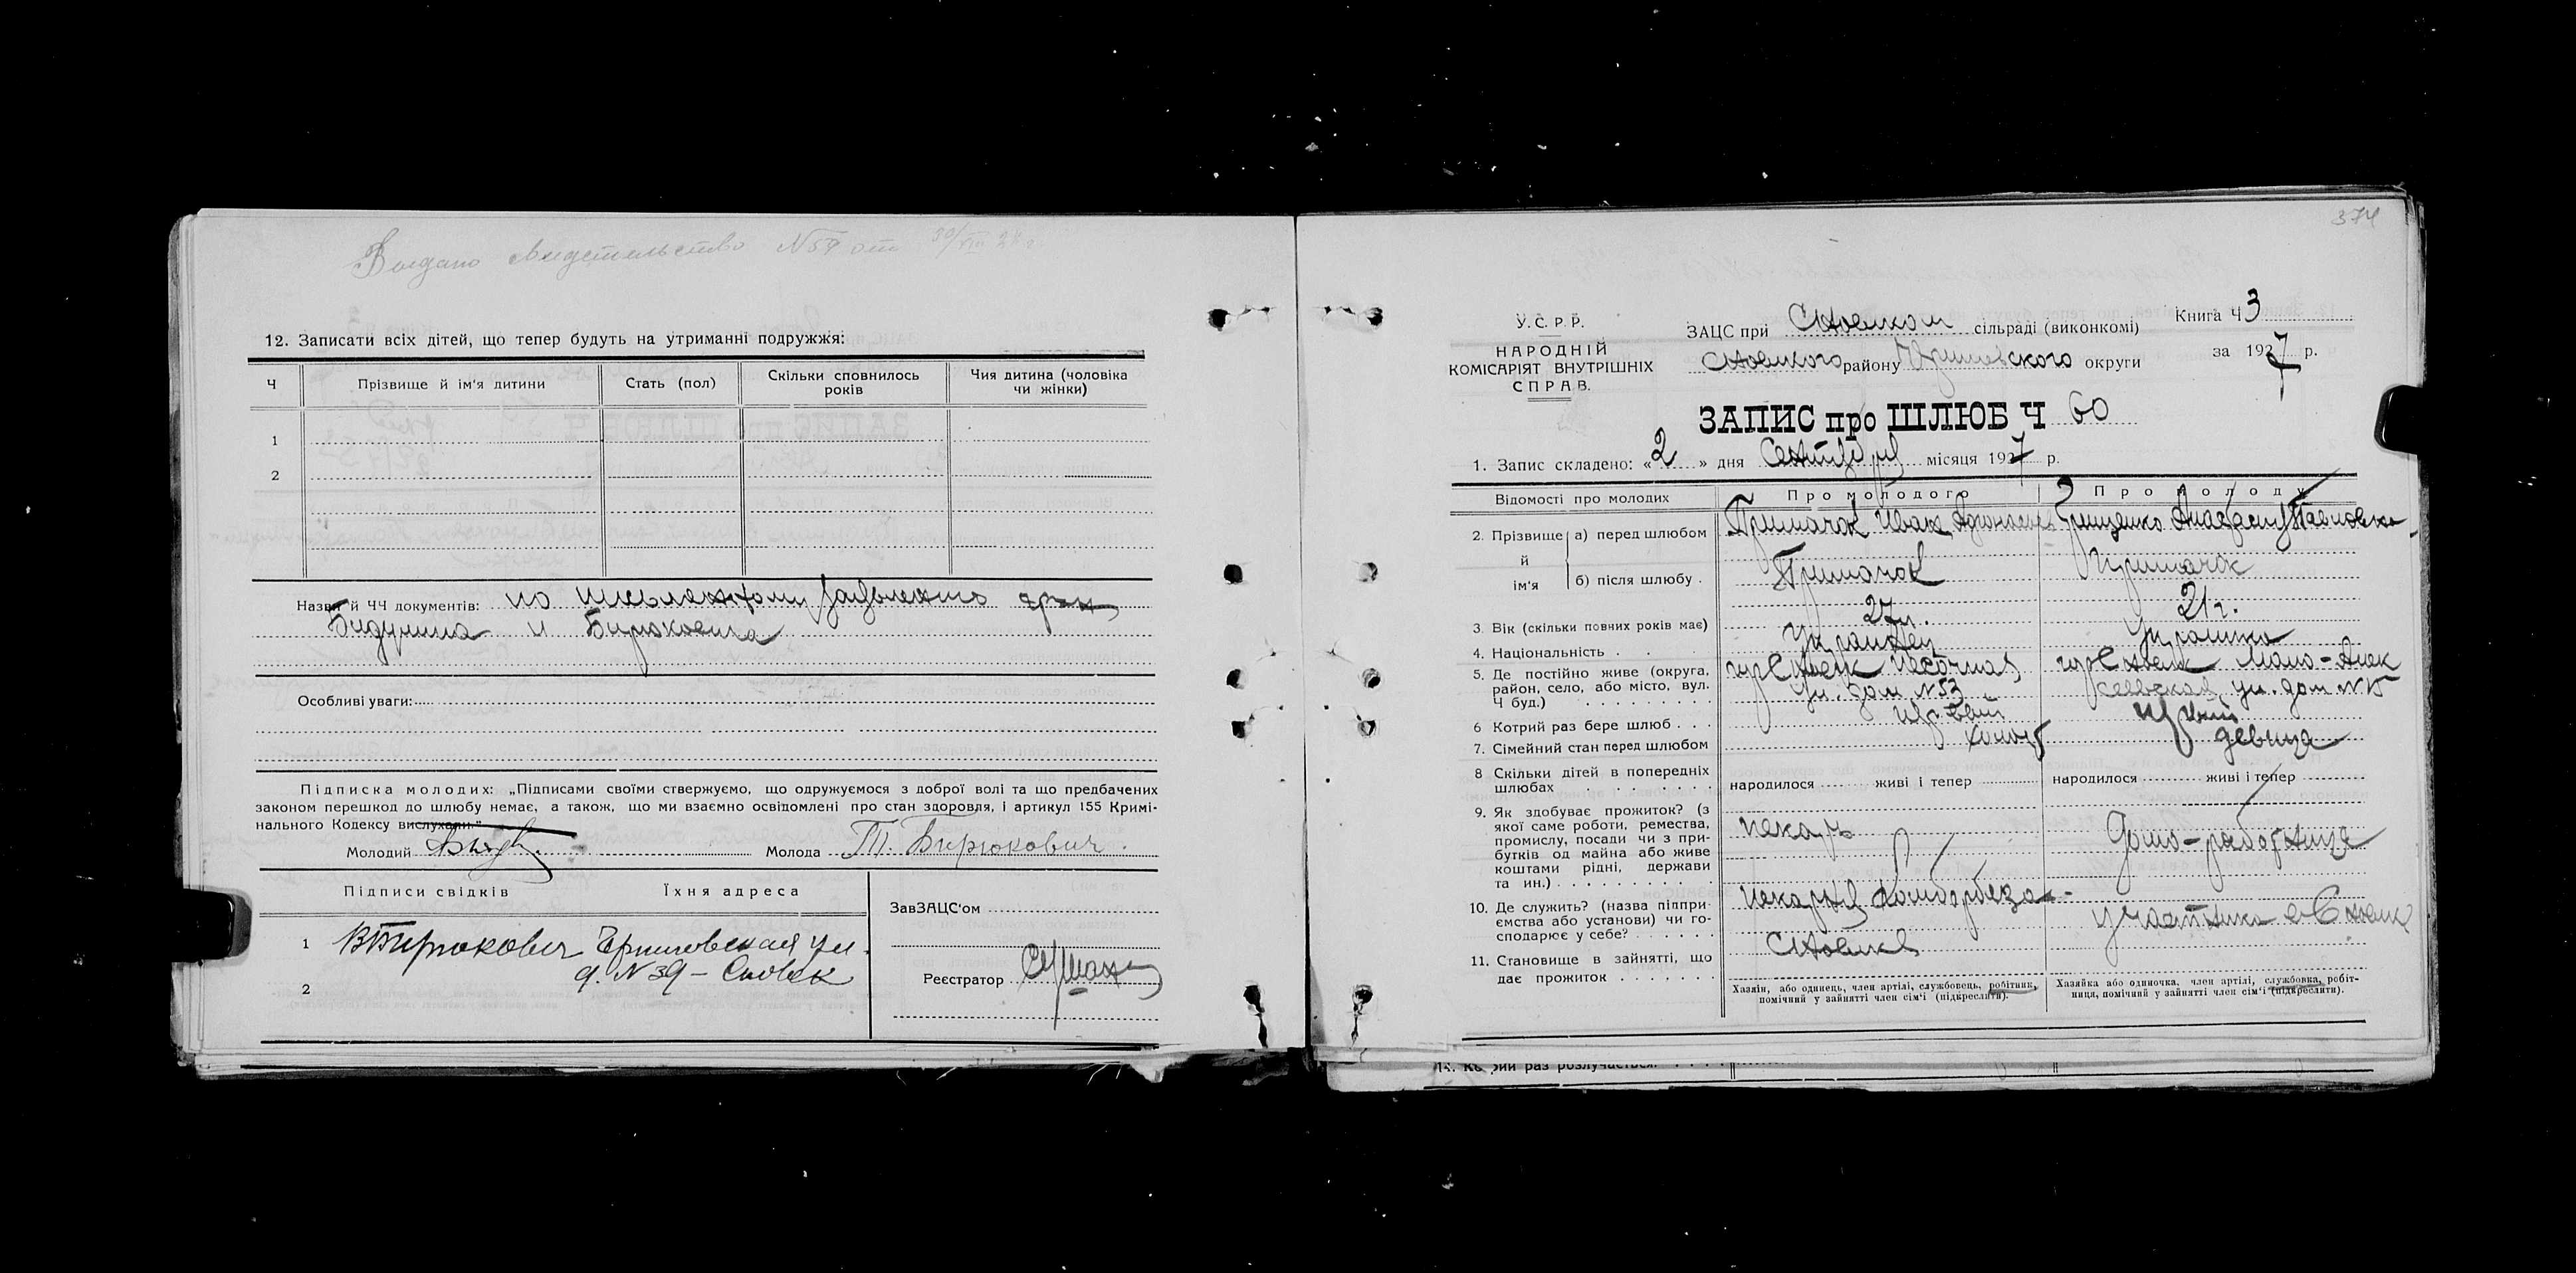 Выдано свидетельство N 59 от 30/VIII 27 г
12. Записати всіх дітей, що тепер будуть на утриманні подружжя:
Ч Прізвище й ім'я дитини Стать (пол) Скільки сповнилось років Чия дитина (чоловіка чи жінки)
1
2
Назви й ЧЧ документів: по письменному граж
и Бирюковича
Особливі уваги:
Підписка молодих: „Підписами своїми ствержуємо, що одружуємося з доброї волі та що предбачених
законом перешкод до шлюбу немає, а також, що ми взаємно освідомлені про стан здоровля, і артикул 155 Кримі-
нального Кодексу вислухали."
Молодий Молода Т. Бирюкович.
Підписи свідків Їхня адреса
1 В Бирюкович Черниговская ул.
д. N 39 – Сновск
2
ЗавЗАЦС'ом
Реєстратор
374
У.С.Р.Р.
НАРОДНІЙ
КОМІСАРІЯТ ВНУТРІШНІХ
СПРАВ.
ЗАЦС при сільраді (виконкомі)
Сновского району ского округи
Книга Ч 3
за 1927 р.
ЗАПИС про ШЛЮБ Ч 60
1. Запис складено: «2» дня Сентября місяця 1927 р.
Відомості про молодих Про молодого Про молоду
2. Прізвище й ім'я а) перед шлюбом Примачок Иван Грищенко Анастасия Павловна
б) після шлюбу Примачок Примачок
3. Вік (скільки повних років має) 27 л. 21 г.
4. Національність Украинец Украинка
5. Де постійно живе (округа, район, село, або місто, вул. Ч буд.)
гор Сновск Песочная ул. дом N 53
гор Сновск Мало-Алексеевская ул. дом N
6 Котрий раз бере шлюб первый первый
7. Сімейний стан перед шлюбом холост девица
8 Скільки дітей в попередніх шлюбах народилося живі і тепер народилося живі і тепер
9. Як здобуває прожиток? (з якої саме роботи, ремества, промислу, посади чи з прибутків од майна або живе коштами рідні, держави та ин.) пекарь Домо-работница
10. Де служить? (назва підприємства або установи) чи господарює у себе? пекарня
Сновска
участника Сновск
11. Становище в зайнятті, що дає прожиток
Хазяїн, або одинець, член артілі, службовець, робітник, помічний у зайнятті член сім'ї (підкреслити).
Хазяйка або одиночка, член артілі, службовка, робітниця, помічний у зайнятті член сім'ї (підкреслити).
раз розлучається.